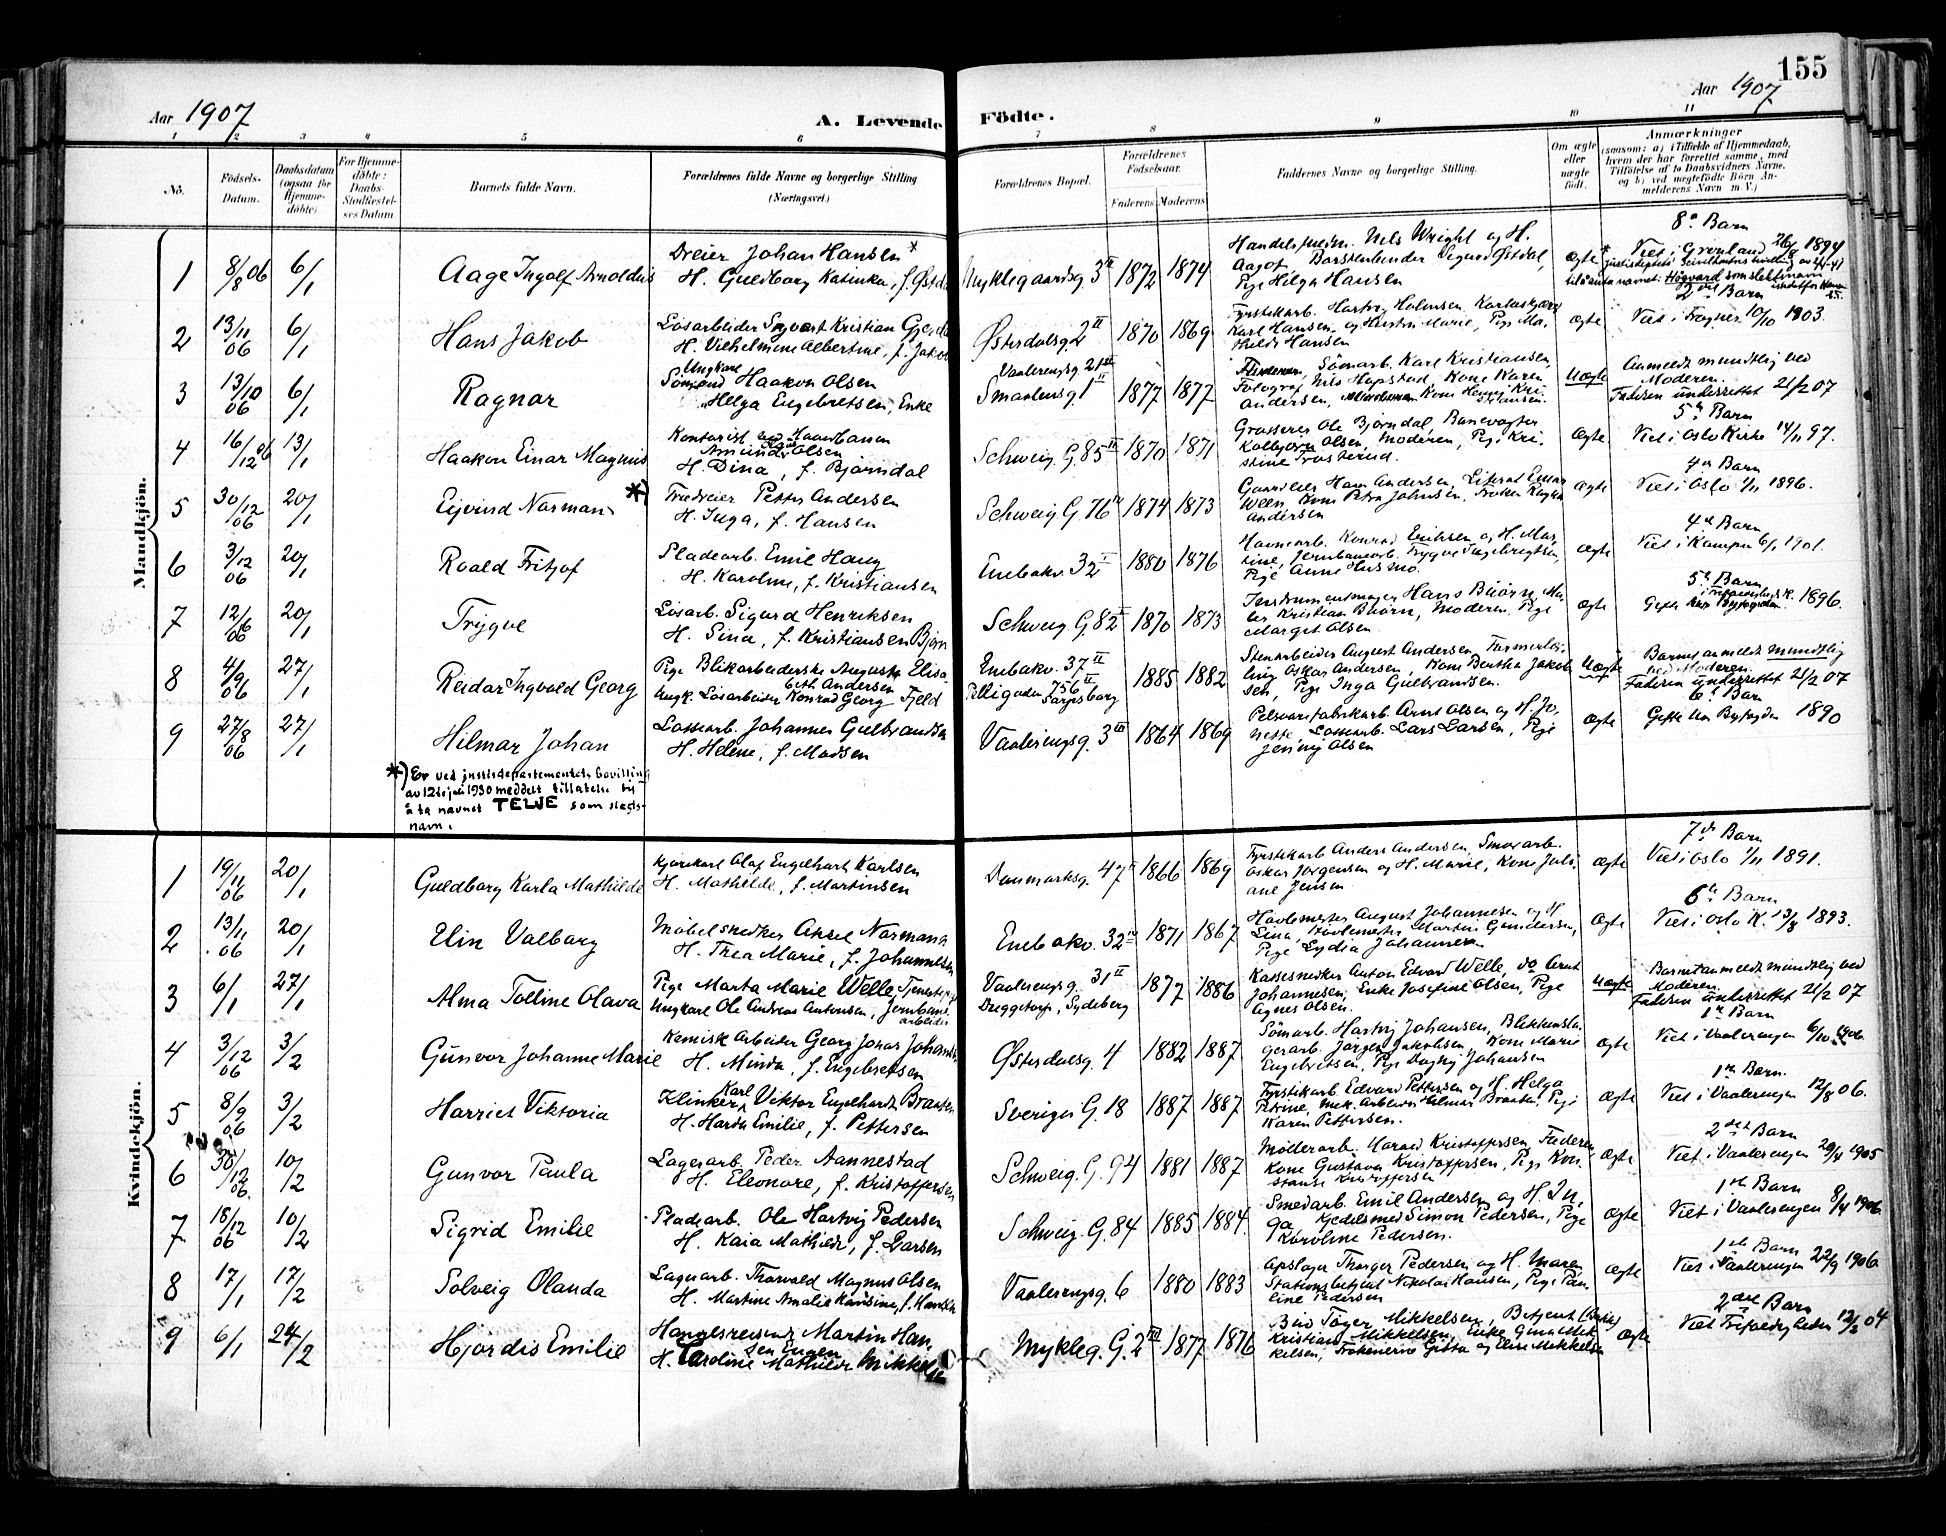 155
Aar 1907
Aar 1907
A. Levende Födte.
1 2 3 4 5 6 7 8 9 10 11
No.
Födsels-Datum.
Daabsdatum (ogsaa for Hjemme-döbte).
For Hjemme-döbte: Daabs-Stadfæstel-ses Datum
Barnets fulde Navn.
Forældrenes fulde Navne og borgerlige Stilling (Næringsvei.)
Forældrenes Bopæl.
Forældrenes Födselsaar.
Faderens Moderens
Faddernes Navne og borgerlige Stilling.
Om ægte eller uægte født.
Anmærkninger
(saasom: a) i Tilfælde af Hjemmedaab, hvem der har forrettet samme, med Tilföielse af to Daabsvidners Navne, og b) ved uægtefödte Börn An-melderens Navn m. V.)
Mandkjön.
1 8/8 06 6/1 Aage Ingolf Arnoldus
Dreier Johan Hansen *
H. Guldborg Katinka, f. Østdal
Nyklegaardsg. 3 II 1872 1874
Handelsfuldm. Nels Wright og H.
Aagot, Børstenbinder Sigurd Østdal,
Pige Helga Hansen
ægte
8de Barn
Viet i Grønland 1894
2det Barn
2 13/11 06 6/1 Hans Jakob
Løsarbeider Sigvart Kristian
H. Vilhelmine Albertine, f. Jakob
Østerdalsg. 2 II 1870 1869
Karl Hansen og Hustru Marie, Pige Ma-
thilde Hansen
ægte
Viet i Fagnes 10/10 1903.
3 13/10 06 6/1 Ragnar
Ungkarl
Sømand Haakon Olsen
Helga Engebretsen, Enke
Vaalerengsg. 21 III
Smaalensg. 1 II 1877 1877
Sømarb. Karl Kristiansen,
Fotograf Nils Hapstad, Kone Karen
Andersen,
Uægte
Anmeldt mundtlig ved
Moderen.
Faderen underrettet 21/2 07
5te Barn
4 16/12 06 13/1 Haakon Einar Magnus
Kontorist
Amund Olsen
H. Dina, f. Bjørndal
Schweig. G. 85 II 1870 1871
Grosserer Ole Bjørndal, Banevogter
Kolbjørn Olsen, Moderen, Pige Kri-
stine Trosterud.
ægte
Viet i Oslo Kirke 14/11 97.
4de Barn
5 30/12 06 20/1 Eivind Norman *)
Trædreier Petter Andersen
H. Inga, f. Hansen
Schweig. G. 76 IV 1874 1873
Gaardeier Hans Andersen, Literat Einar
Well, Kone Petra Johnsen, Frøken Ragna
Andersen
ægte
Viet i Oslo 1/11 1896.
4de Barn
6 3/12 06 20/1 Roald Fritjof
Pladearb. Emil Haug
H. Karoline, f. Kristiansen
Enebakv. 32 I 1880 1876
Havnearb. Konrad Eriksen og H. Mar-
tine, Jernbanearb. Trygve Ingebrigtsen,
Pige Anne Husmo.
ægte
Viet i Kampen 6/1 1901.
5te Barn
7 12/6 06 20/1 Trygve
Løsarb. Sigurd Henriksen
H. Sina, f. Kristiansen Bjørn
Schweig. G. 82 II 1870 1873
Instrumentmager Hans Biørn, Ma-
ler Kristian Biørn, Moderen, Pige
Margit Olsen
ægte
Gifte hos Byfogden 1896.
8 4/9 06 27/1 Reidar Ingvald Georg
Pige Blikarbeiderske Augusta Elisa-
beth Andersen
Ungk. Løsarbeider Konrad Georg Fjeld
Enebakv. 37 II
Pelligaden 756 II Sarpsborg
1885 1882
Stenarbeider August Andersen, Farmerlær-
ling Oskar Andersen, Kone Bertha Jakob-
sen, Pige Inga Gulbrandsen.
Uægte
Barnet anmeldt mundtlig
ved Moderen.
Faderen underrettet 21/2 07
6te Barn
9 27/8 06 27/1 Hilmar Johan
Lossearb. Johannes Gulbrandsen
H. Helene, f. Madsen
Vaalerengsg. 3 III 1864 1869
Pelsvarefabrikarb. Arnt Olsen og H. Jo-
nette, Lossearb. Lars Larsen, Pige
Jenny Olsen
ægte
Gifte hos Byfogden 1890
*) Er ved justisdepartementets bevilling
av 12te juli 1930 meddelt tillatelse til
å ta navnet TELJE som slegts-
navn.
Kvindekjön.
1 19/11 06 20/1 Guldborg Karla Mathilde
Kjørekarl Olaf Engelhart Karlsen
H. Mathilde, f. Martinsen
Danmarksg. 47 I 1866 1869
Fyrstikarb. Anders Andersen, Smørarb.
Oskar Jørgensen og H. Marie, Kone Juli-
ane Jensen
ægte
7de Barn
Viet i Oslo 1/11 1891.
2 13/11 06 20/1 Elin Valborg
Møbelsnedker Aksel Normann
H. Thea Marie, f. Johannesen
Enebakv. 32 IV 1871 1867
Høvlemester August Johannesen og H.
Lina, Høvlemester Martin Gundersen,
Pige Lydia Johannesen
ægte
6te Barn
Viet i Oslo K. 13/8 1893.
3 6/1 27/1 Alma Toline Olava
Pige Marta Marie Welle, Tjenestepige
Ungkarl Ole Andreas Antonsen, Jernbane-
arbeider
Vaalerengsg. 31 II
Dreggetorp, Sydeberg
1877 1886
Kassesnedker Anton Edvard Welle, do Arnt
Johannesen, Enke Josefine Olsen, Pige
Agnes Olsen.
Uægte
Barnet anmeldt mundtlig ved
Moderen.
Faderen underrettet 21/2 07
4 3/12 06 3/2 Gunvor Johanne Marie
Kemisk Arbeider Georg Jonas Johansen
H. Minda, f. Engebretsen
Østerdalsg. 4 1882 1887
Sømarb. Hartvig Johansen, Blikkensla-
gerarb. Jørgen Jakobsen, Kone Marie
Engebretsen, Pige Dagny Johansen
ægte
1ste Barn
Viet i Vaalerengen 6/10 1906.
5 8/9 06 3/2 Harriet Viktoria
Klinker Karl Viktor Engelhardt Braaten
H. Harda Emilie, f. Pettersen
Sveriges G. 18 1887 1887
Fyrstikarb. Edvard Pettersen og H. Helga
Petrine, Mek. Arbeider Hilmar Braaten, Pige
Karen Pettersen.
ægte
1ste Barn.
Viet i Vaalerengen 12/8 06.
6 30/12 06. 10/2 Gunvor Paula
Lagerarb. Peder Aannestad
H. Eleonore, f. Kristoffersen
Schweig. G. 94 1881 1887
Møllerarb. Harald Kristoffersen, Faderen,
Kone Gustava Kristoffersen, Pige Kon-
stanse Kristoffersen
ægte
2det Barn
Viet i Vaalerengen 20/4 1905
7 18/12 06 10/2 Sigrid Emilie
Pladearb. Ole Hartvig Pedersen
H. Kaia Mathilde, f. Larsen
Schweig. G. 84 1885 1884.
Smedarb. Emil Andersen og H. In-
ga, Kjedelsmed Simon Pedersen, Pige
Karoline Pedersen.
ægte
1ste Barn
Viet i Vaalerengen 8/4 1906
8 17/1 17/2 Solveig Olanda
Lagerarb. Thorvald Magnus Olsen
H. Martine Amalie Hansine, f. Hansen
Vaalerengsg. 6 1880 1883
Opslager Thorger Pedersen og H. Maren
Stationsbetjent Nikolai Hansen, Pige Pau-
line Pedersen
ægte
1ste Barn
Viet i Vaalerengen 22/9 1906.
9 6/1 24/2 Hjørdis Emilie
Handelsreisende Martin Han-
sen Engen
H. Caroline Mathilde Mikkelsen
Nykleg. G. 2 III 1877 1876
Mikkelsen, Betjent
Kristian Mikkelsen, Enke Gina Mik-
kelsen, Frøknerne Gitta og Elise Mikkelsen
ægte
2det Barn
Viet Trefoldigheden 12/3 04